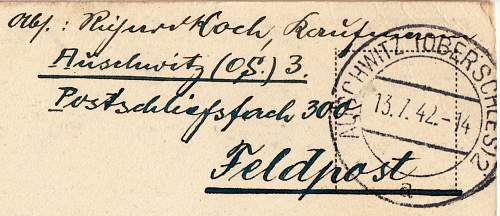 Abs.: Richard Koch, Kaufmann
Auschwitz (OS.) 3.
Postschliessfach 300
Feldpost
AUSCHWITZ (OBERSCHLES) 2
13.7.42.-14
a